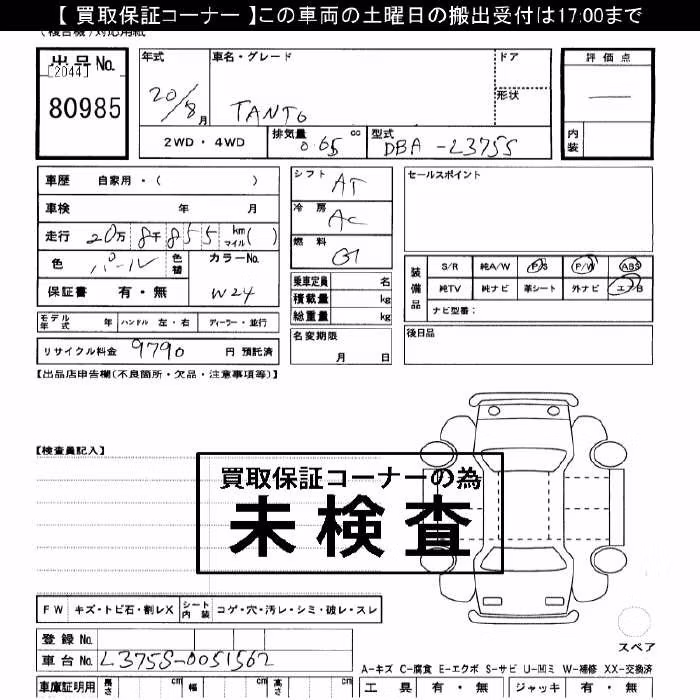 【 買取保証コーナー 】この車両の土曜日の搬出受付は17:00まで
(複合機)対応用紙
出品No.
[2044]
80985
年式
20/8月
車名・グレード
TANTO
ドア
形状
評価点
—
内装
2WD・4WD
排気量 0.65 cc
型式 DBA-L375S
車歴 自家用・( )
車検 年 月
走行 20万 8千 855 km マイル( )
色 パール 色替
カラーNo.
W24
保証書 有・無
モデル年式 年 ハンドル 左・右 ディーラー・並行
リサイクル料金 9790 円 預託済
シフト AT
冷房 AC
燃料 G
乗車定員 名
積載量 kg
総重量 kg
名変期限
月 日
セールスポイント
装備品
S/R 純A/W P/S P/W ABS
純TV 純ナビ 革シート 外ナビ エアB
ナビ型番:
後日品
【出品店申告欄(不良箇所・欠品・注意事項等)】
【検査員記入】
買取保証コーナーの為
未検査
FW キズ・トビ石・割レX シート内装 コゲ・穴・汚レ・シミ・破レ・スレ
スペア
登録No.
車台No. L375S-0051562
A-キズ C-腐食 E-エクボ S-サビ U-凹ミ W-補修 XX-交換済
車庫証明用 長さ cm 幅 cm 高さ cm
工具 有・無 ジャッキ 有・無